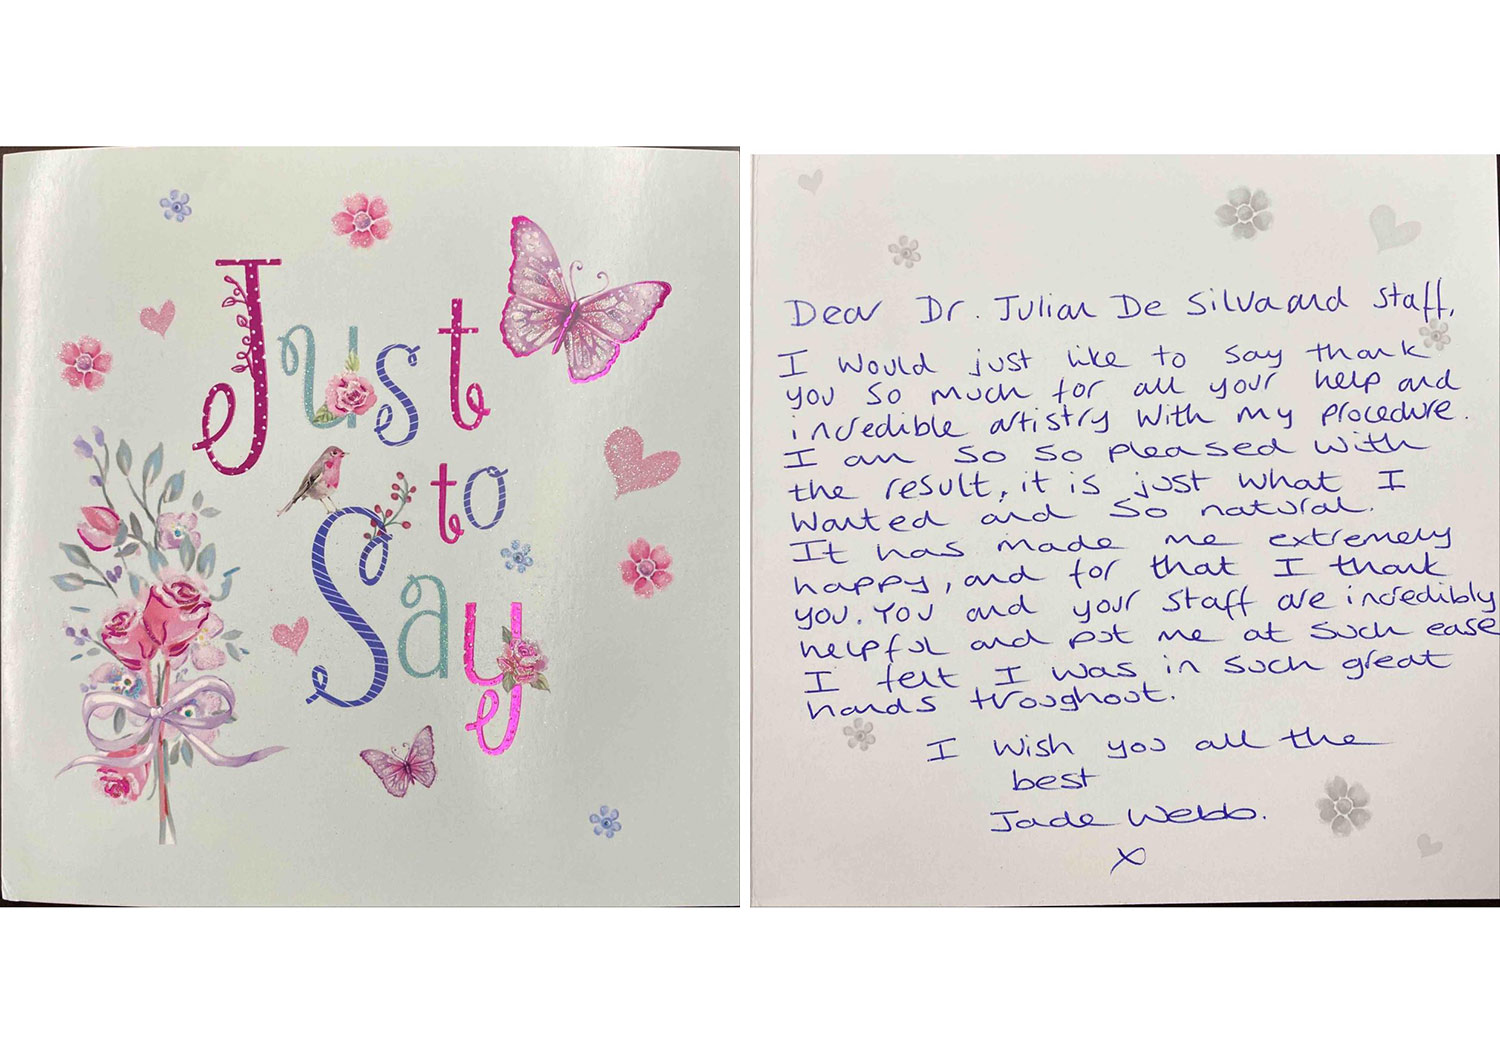 Just
to
Say
Dear Dr. Julian De Silva and staff,
I would just like to say thank
you so much for all your help and
incredible artistry with my procedure.
I am so so pleased with
the result, it is just what I
wanted and so natural.
It has made me extremely
happy, and for that I thank
you. You and your staff are incredibly
helpful and put me at such ease
I felt I was in such great
hands troughout.
I wish you all the
best
Jade Webb.
x